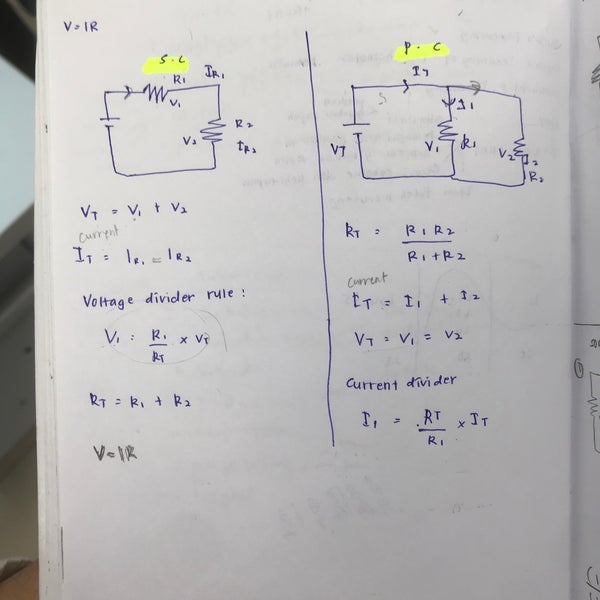 V = IR
S.C
R1 IR1
V1
R2
V2 IR2
VT = V1 + V2
current
IT = IR1 = IR2
Voltage divider rule :
V1 = R1/RT × VT
RT = R1 + R2
V=IR
P.C
IT
S I1
VT V1 R1 V2 I2
R2
RT = R1 R2 / R1 + R2
current
IT = I1 + I2
VT = V1 = V2
Current divider
I1 = RT/R1 × IT